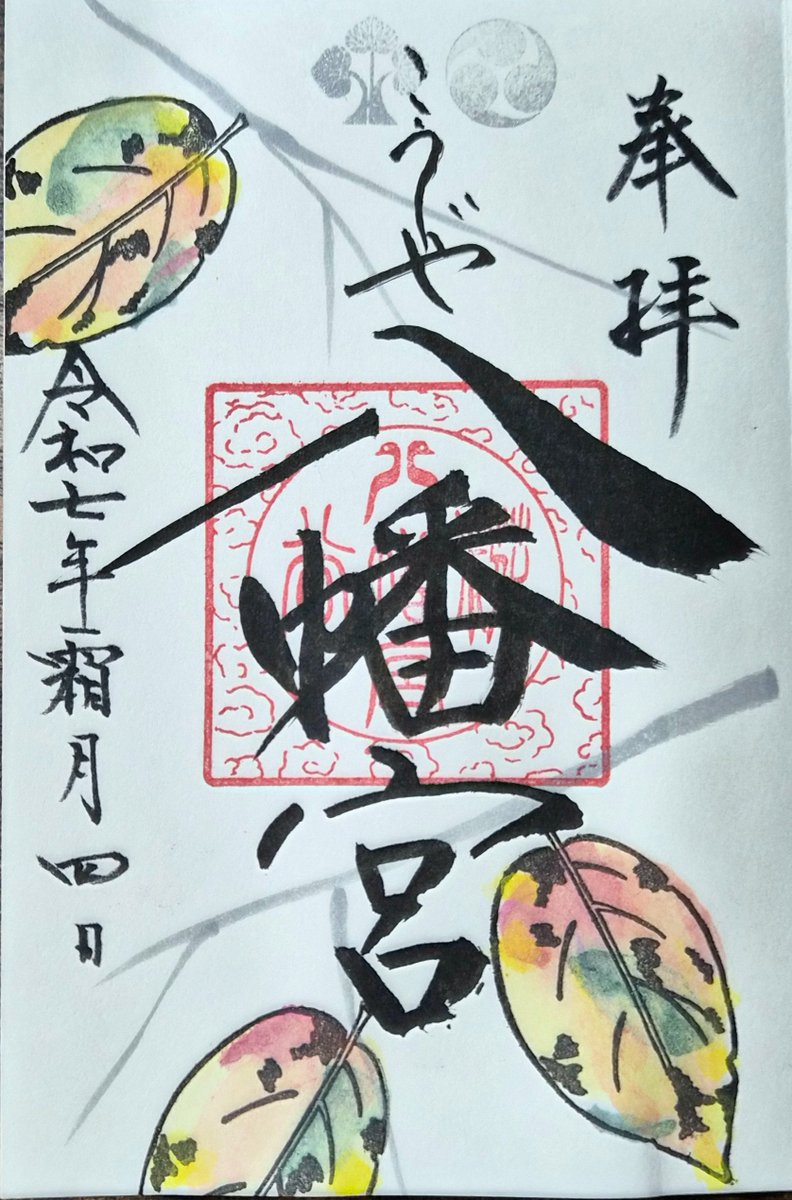 奉拝
こうじや
八幡宮
令和七年霜月四日